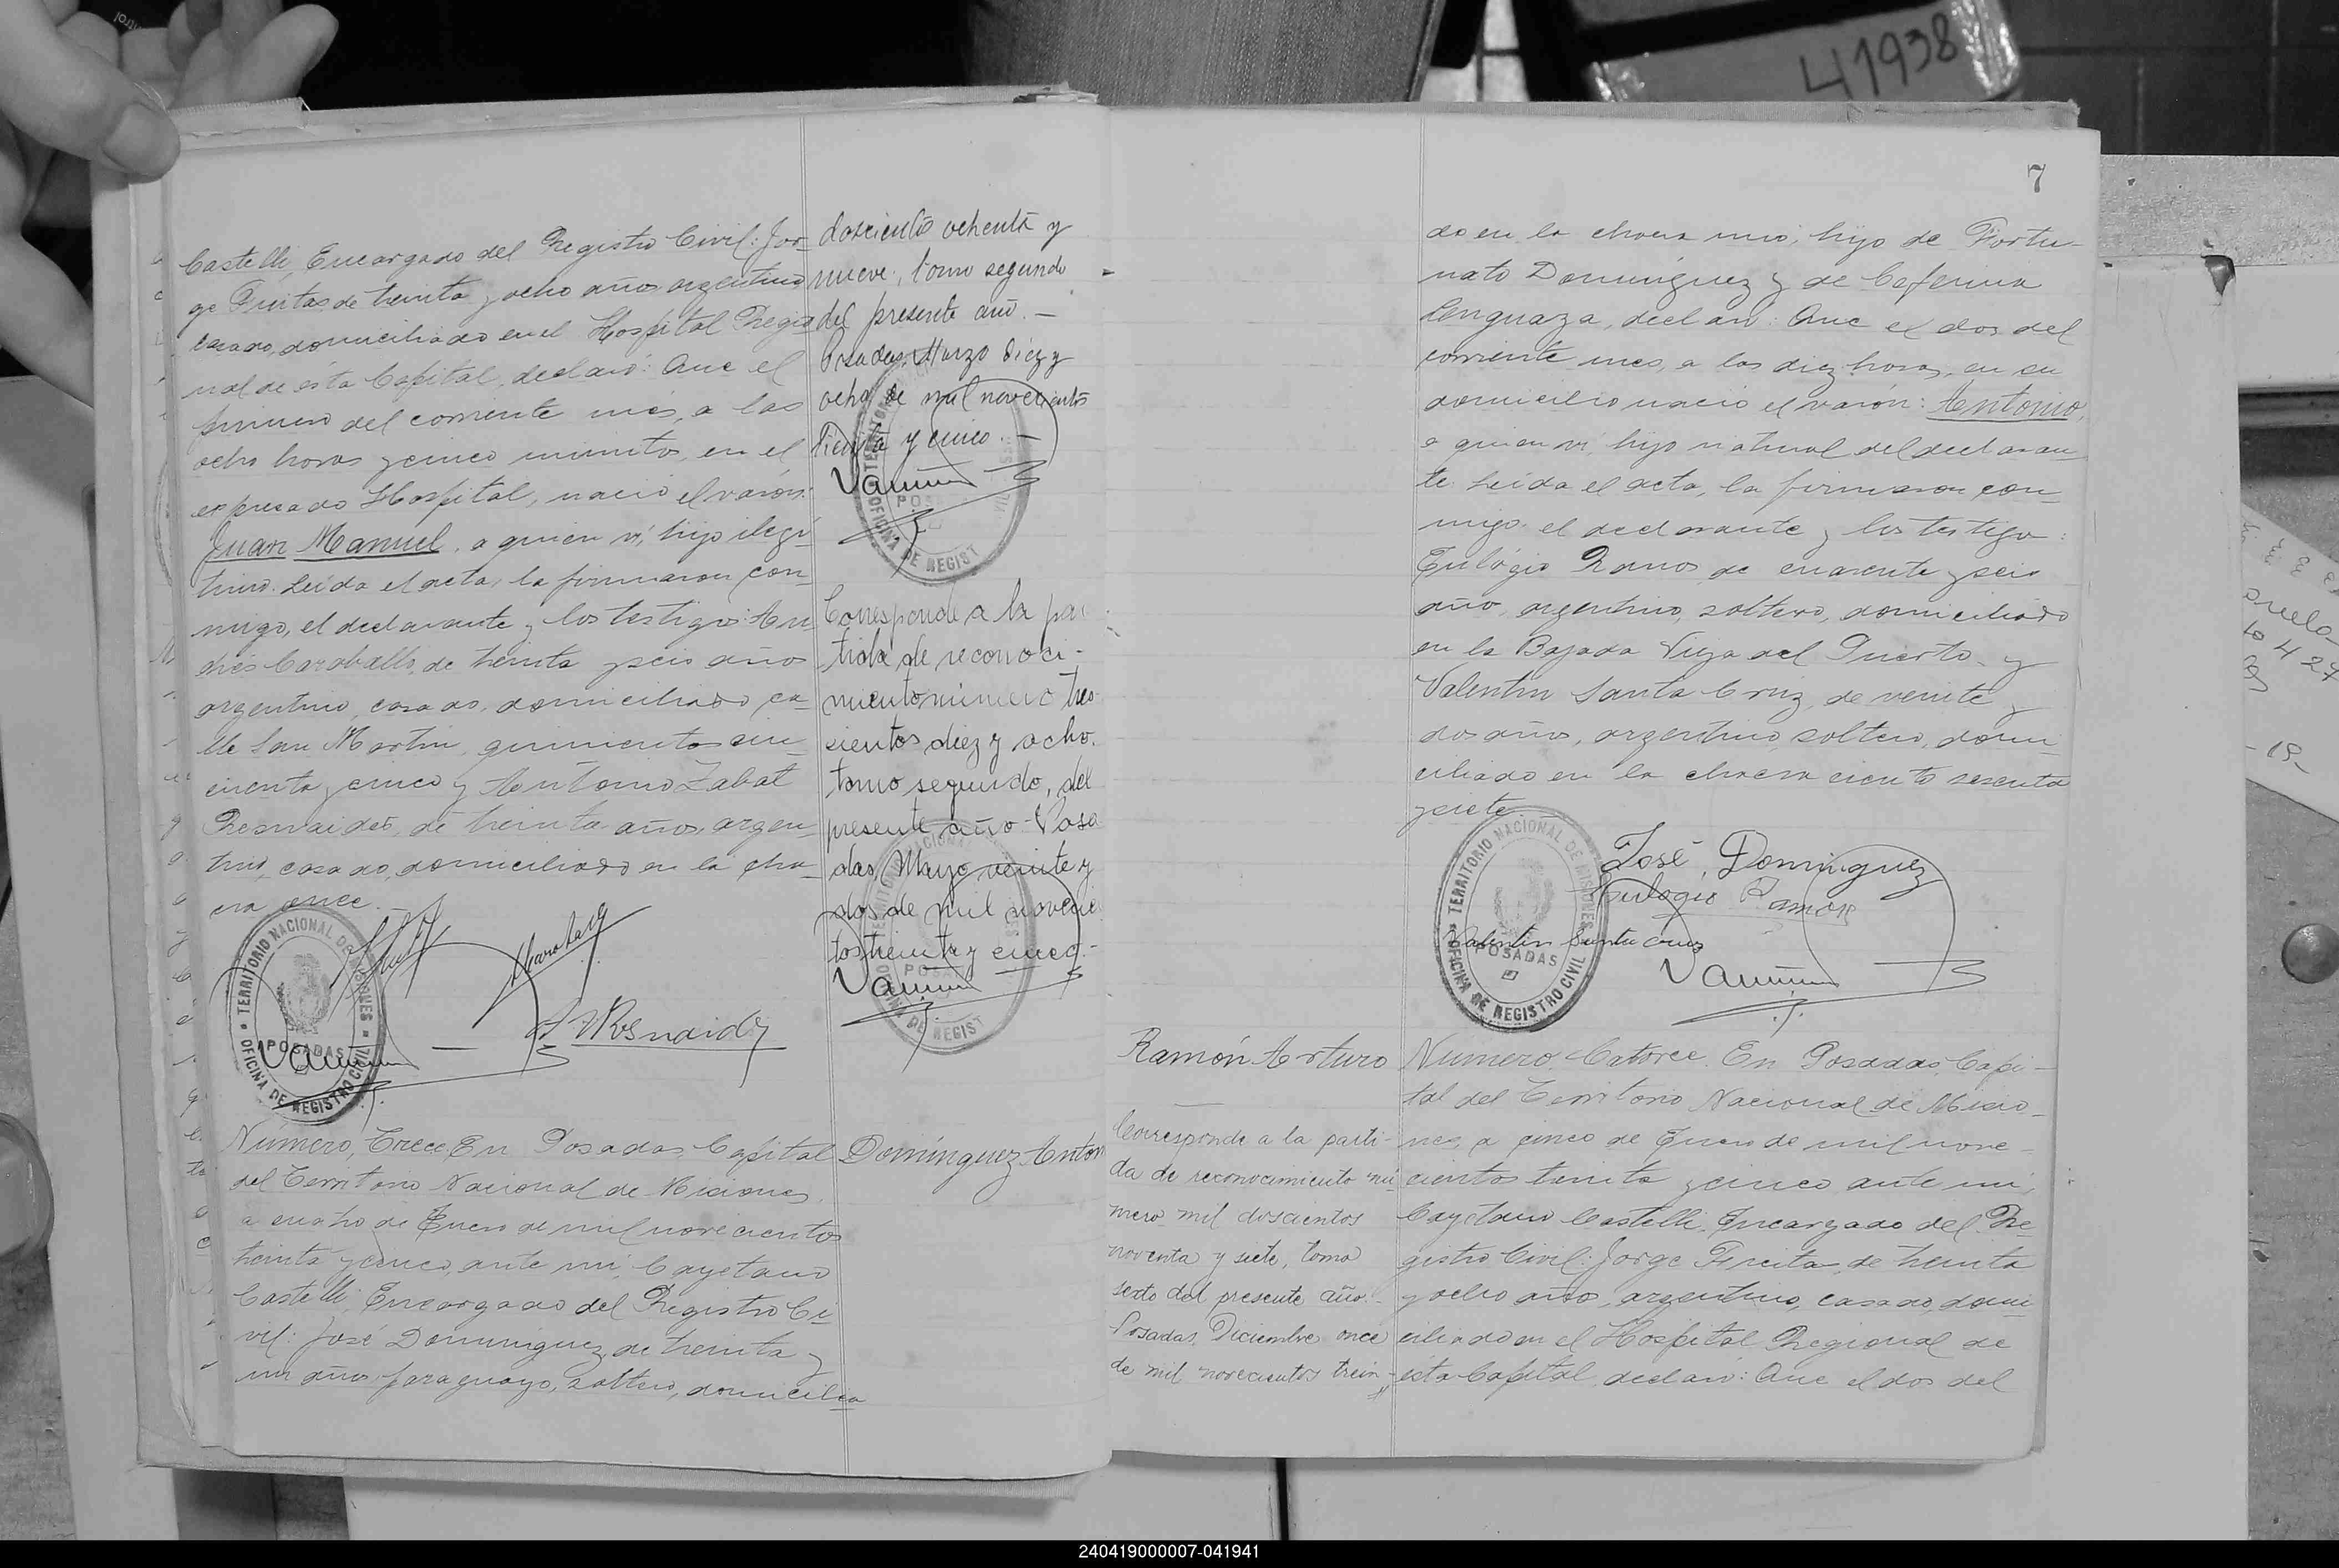 41938
7
Castelli, Encargado del Registro Civil: Jor-
ge Freitas de treinta y ocho años argentino
casado, domiciliado en el Hospital Regio
nal de ésta Capital, declaró: Que el
primero del corriente més, a las
ocho horas y cinco minutos, en el
expresado Hospital, nació el varón:
Juan Manuel, a quien ví, hijo ilegí-
timo. Leída el acta, la firmaron con-
migo, el declarante y los testigos: An
drés Caraballo, de treinta y seis años
argentino, casado, domiciliado ca-
lle San Martín, quinientos cin-
cuenta y cinco y Antonio Zabat
Resnaides, de treinta años, argen-
tino, casado, domiciliado en la cha-
cra once.
TERRITORIO NACIONAL DE MISIONES
POSADAS
OFICINA DE REGISTRO CIVIL
Número, Trece, En Posadas, Capital
del Territorio Nacional de Misiones,
a cuatro de Enero de mil novecientos
treinta y cinco, ante mí, Cayetano
Castelli, Encargado del Registro Ci-
vil: José Dominguez, de treinta y
un años, paraguayo, soltero, domicilia
doscientos ochenta y
nueve, tomo segundo
del presente año. -
Posadas, Marzo diez y
ocho de mil novecientos
treinta y cinco. -
Corresponde a la par
tida de reconoci-
miento número tres
cientos diez y ocho.
tomo segundo, del
presente año - Posa
das, Mayo veinte y
dos de mil novecien
tos treinta y cinco. -
Domínguez Anton
Ramón Arturo
Corresponde a la parti-
da de reconocimiento nú
mero mil doscientos
noventa y siete, tomo
sexto del presente año.-
Posadas, Diciembre once
de mil novecientos trein-
do en la chacra uno, hijo de Fortu-
nato Domínguez y de Ceferina
Lenguaza, declaró: Que el dos del
corriente mes, a las diez horas, en su
domicilio nació el varón: Antonio,
a quien ví, hijo natural del declaran-
te. Leída el acta, la firmaron con-
migo el declarante y los testigos:
Eulógio Ramos de cuarenta y seis
años, argentino, soltero, domiciliado
en la Bajada Vieja del Puerto y
Valentin Santa Cruz, de veinte y
dos años, argentino, soltero, domi-
ciliado en la chacra ciento sesenta
y siete.
José Dominguez
Eulogio Ramos
Valentin Santa Cruz
TERRITORIO NACIONAL DE MISIONES
POSADAS
OFICINA DE REGISTRO CIVIL
Número, Catorce. En Posadas, Capi-
tal del Territorio Nacional de Misio-
nes, a cinco de Enero de mil nove-
cientos treinta y cinco, ante mí,
Cayetano Castelli, Encargado del Re-
gistro Civil: Jorge Freitas, de treinta
y ocho años, argentino, casado, domi
ciliado en el Hospital Regional de
ésta Capital, declaró: Que el dos del
240419000007-041941